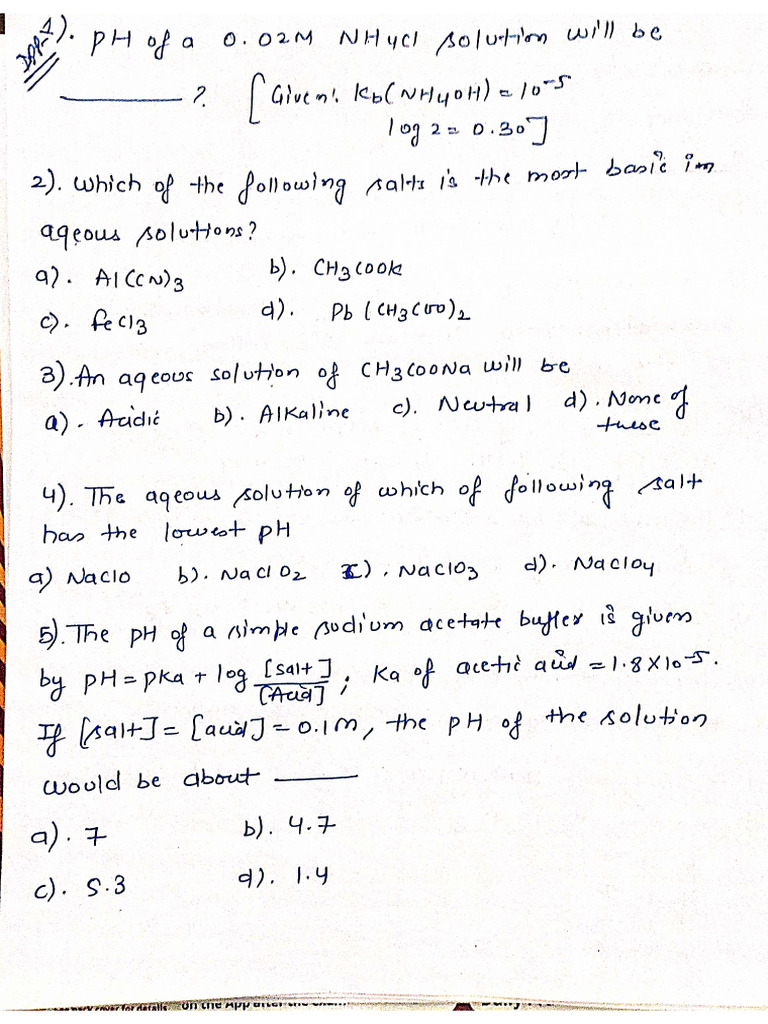 DPP-1
1). pH of a 0.02M NH4Cl solution will be
________? [Given: Kb(NH4OH) = 10-5
log 2 = 0.30]
2). Which of the following salts is the most basic in
aqeous solutions?
a). Al(CN)3 b). CH3COOK
c). FeCl3 d). Pb(CH3COO)2
3). An aqeous solution of CH3COONa will be
a). Acidic b). Alkaline c). Neutral d). None of
these
4). The aqeous solution of which of following salt
has the lowest pH
a) NaClO b). NaClO2 c). NaClO3 d). NaClO4
5). The pH of a simple sodium acetate buffer is given
by pH = pKa + log [Salt]/[Acid]; Ka of acetic acid = 1.8×10-5.
If [salt] = [acid] = 0.1M, the pH of the solution
would be about ______
a). 7 b). 4.7
c). 5.3 d). 1.4
cover for details on the App after the